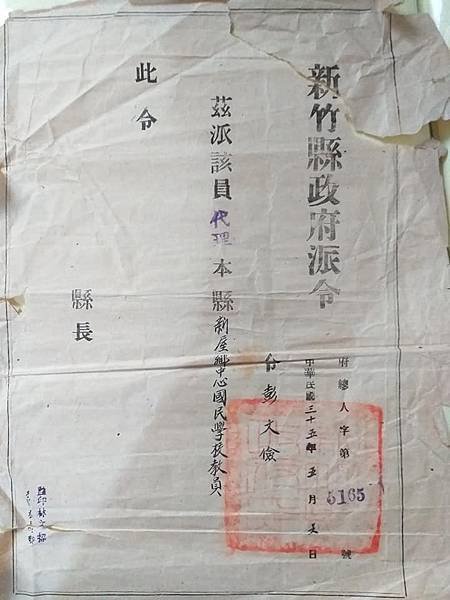 新竹縣政府派令
府總人字第5165號
中華民國三十五年五月 日
令彭文儉
茲派該員代理本縣新屋鄉中心國民學校教員
此令
縣長
監印林